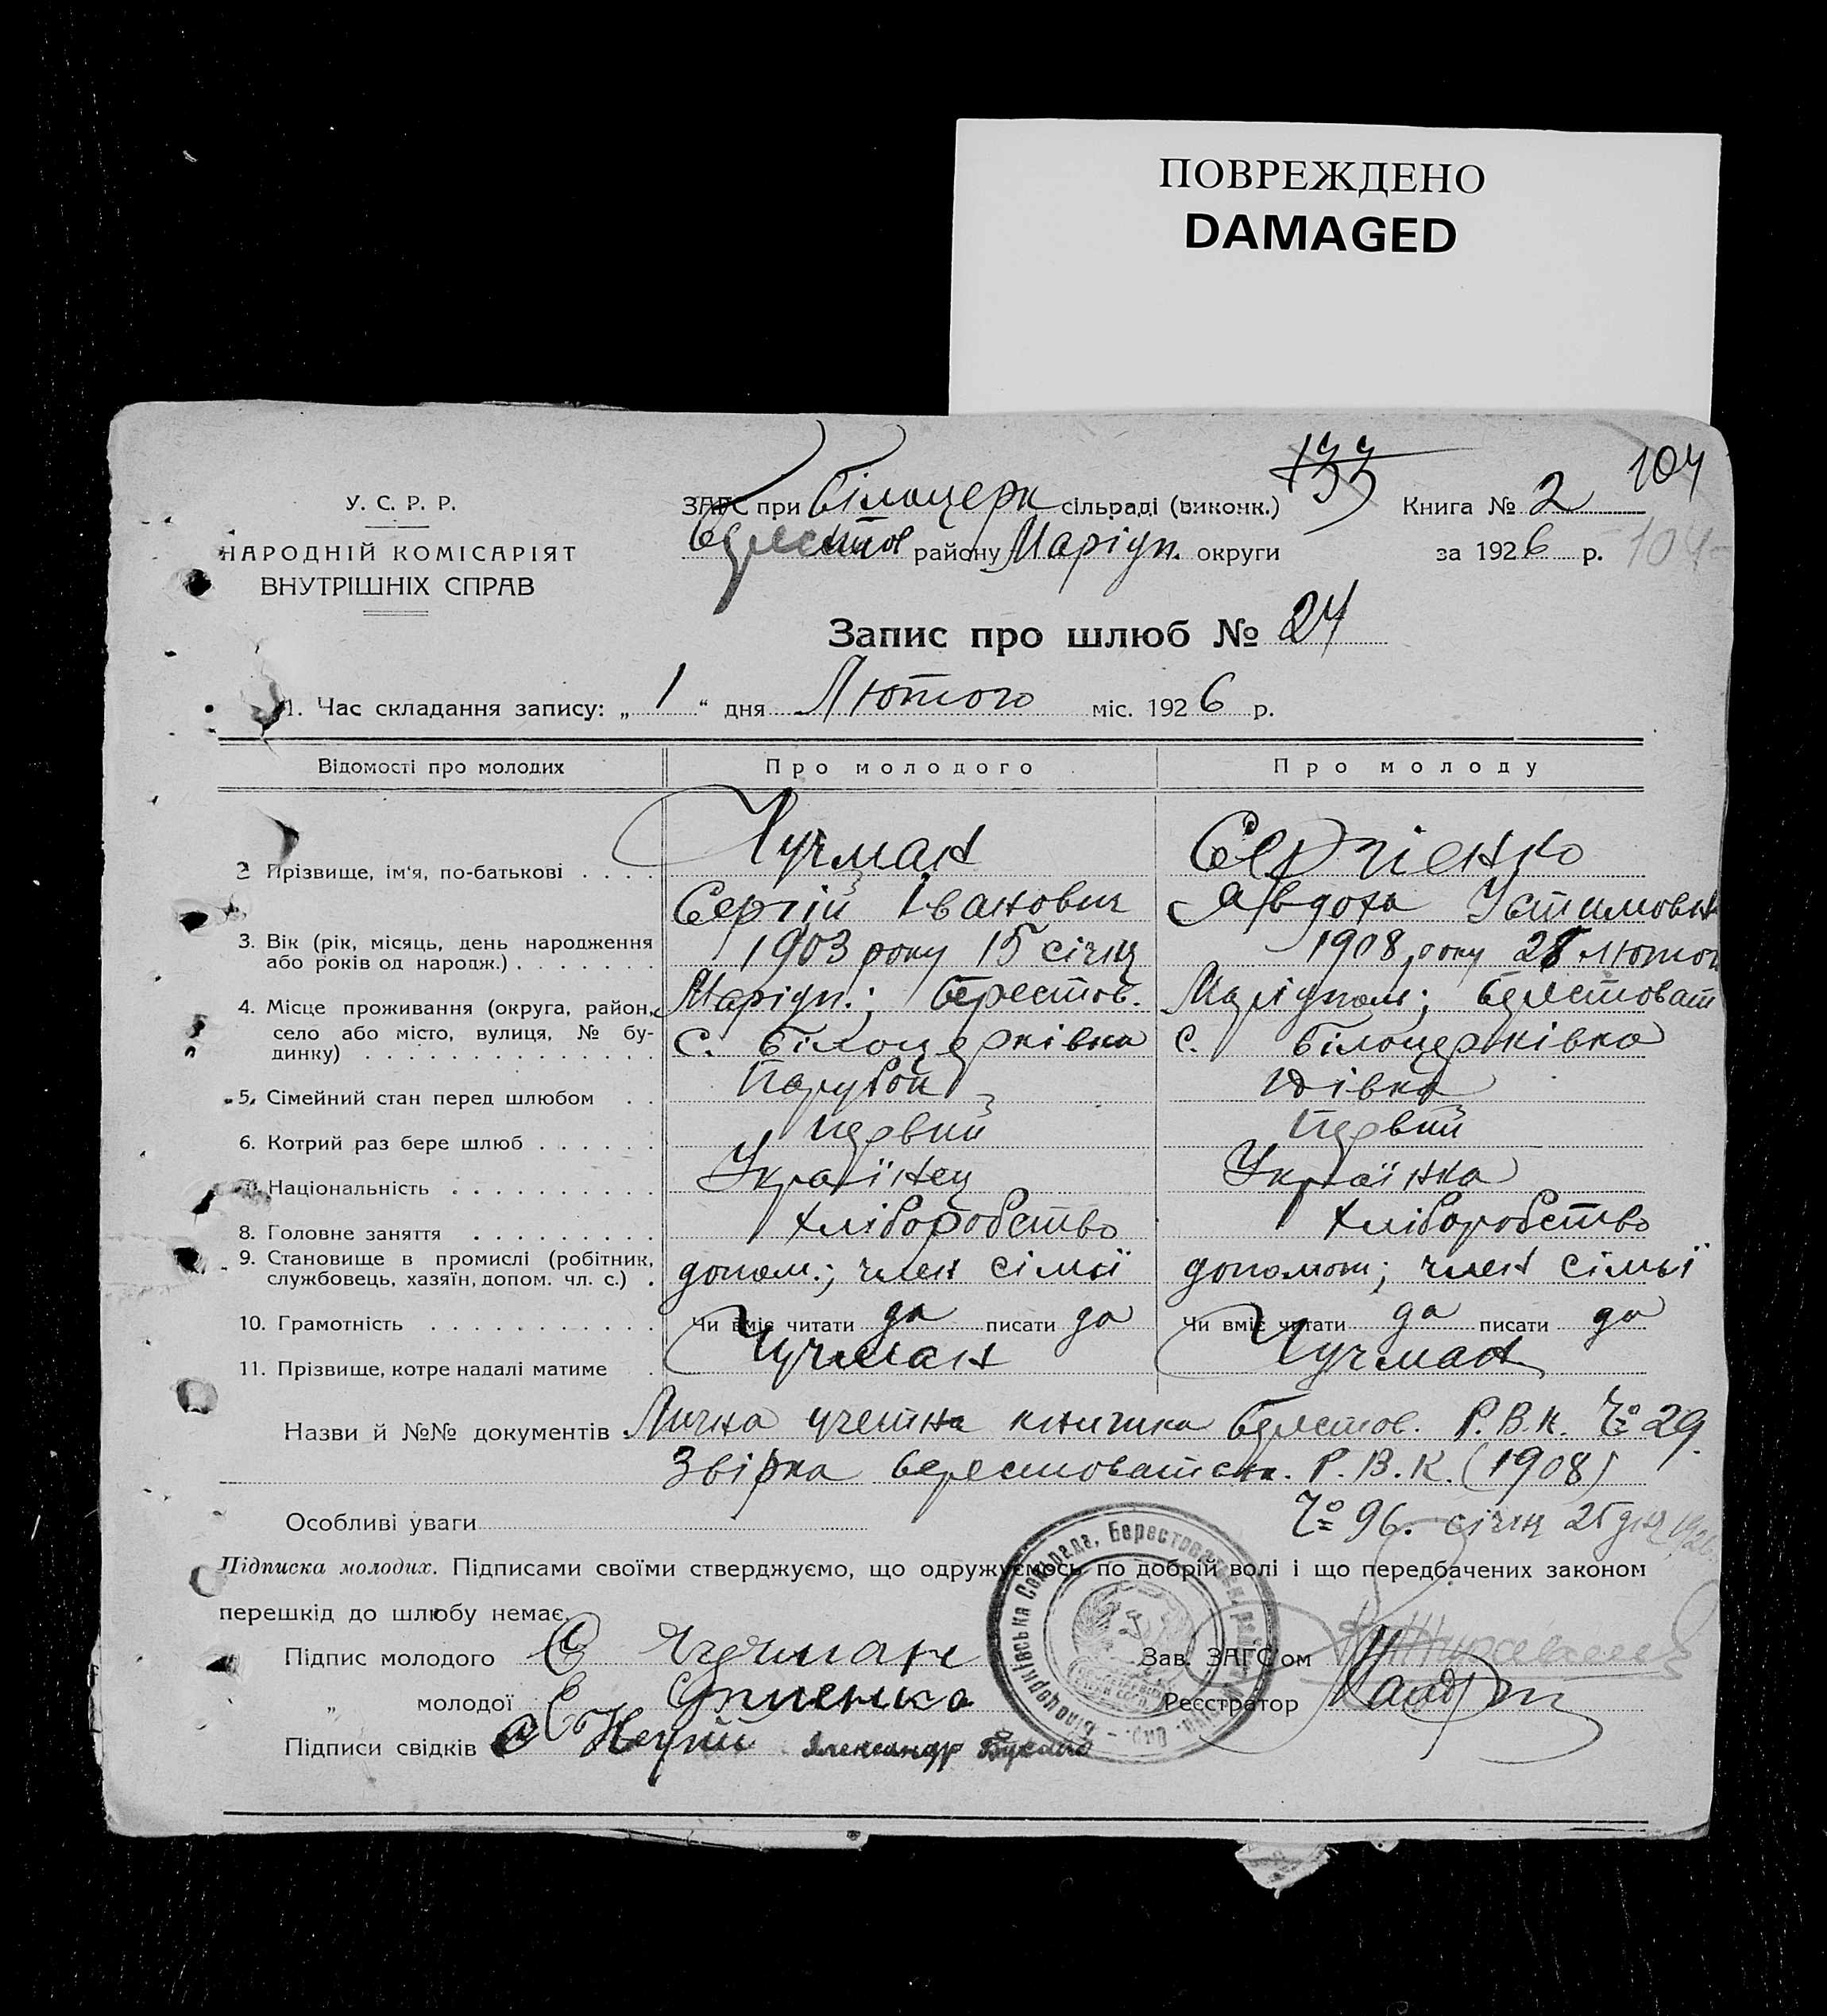 ПОВРЕЖДЕНО
DAMAGED
133
104
У. С. Р. Р.
ЗАГС при Білоцерк сільраді (виконк.) Книга № 2
НАРОДНІЙ КОМІСАРІЯТ
ВНУТРІШНІХ СПРАВ
Берестов району Маріуп. округи за 1926 р. 104
Запис про шлюб № 24
1. Час складання запису: „ 1 “ дня Лютого міс. 1926 р.
Відомості про молодих Про молодого Про молоду
Чучман Сергієнко
2 Прізвище, ім'я, по-батькові . . . .
Сергій Іванович Явдоха Устимовн
3. Вік (рік, місяць, день народження
або років од народж.) . . . . . . . 1903 року 15 січня 1908 року 28 лютог
4. Місце проживання (округа, район, Маріуп.; Берестов. Маріуполь; Берестоват
село або місто, вулиця, № бу-
динку) . . . . . . . . . . . . . . с. Білоцерківка с. Білоцерківка
5. Сімейний стан перед шлюбом . . Парубой Дівка
6. Котрий раз бере шлюб . . . . . . Первий Первий
7. Національність . . . . . . . . . . Українец Українка
8. Головне заняття . . . . . . . . . Хліборобство Хліборобство
9. Становище в промислі (робітник,
службовець, хазяїн, допом. чл. с.) . допом.; член сімьї допомож; член сімьї
10. Грамотність . . . . . . . . . . . Чи вміє читати да писати да Чи вміє читати да писати да
11. Прізвище, котре надалі матиме . Чучман Чучман
Назви й №№ документів Лична учетна книжка Берестов. Р.В.К. № 29.
Звірка Берестоватськ. Р.В.К. (1908)
Особливі уваги № 96. січня 25 дня 1926
Підписка молодих. Підписами своїми стверджуємо, що одружуємось по добрій волі і що передбачених законом
перешкід до шлюбу немає.
Білоцерківська Сільрада, Берестоватськ. району
Підпис молодого С Чучман Зав. ЗАГС'ом
„ молодої Реєстратор
Підписи свідків Александр